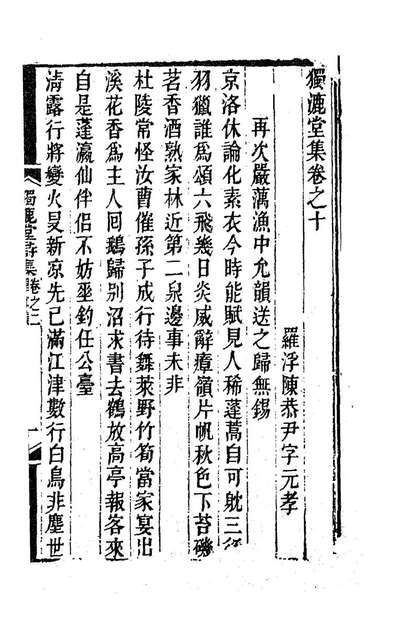 獨漉堂集卷之十
羅浮陳恭尹字元孝
再次嚴藕漁中允韻送之歸無錫
京洛休論化素衣今時能賦見人稀蓬蒿自可躭三徑
羽獵誰爲頌六飛幾日炎威辭瘴嶺片帆秋色下苔磯
茗香酒熟家林近第二泉邊事未非
杜陵常怪汝曹催孫子成行待舞萊野竹筍當家宴出
溪花香爲主人回鵝歸別沼求書去鶴放高亭報客來
自是蓬瀛仙伴侶不妨垂釣任公臺
清露行將變火旻新凉先已滿江津數行白鳥非塵世
獨漉堂詩集卷之十
一